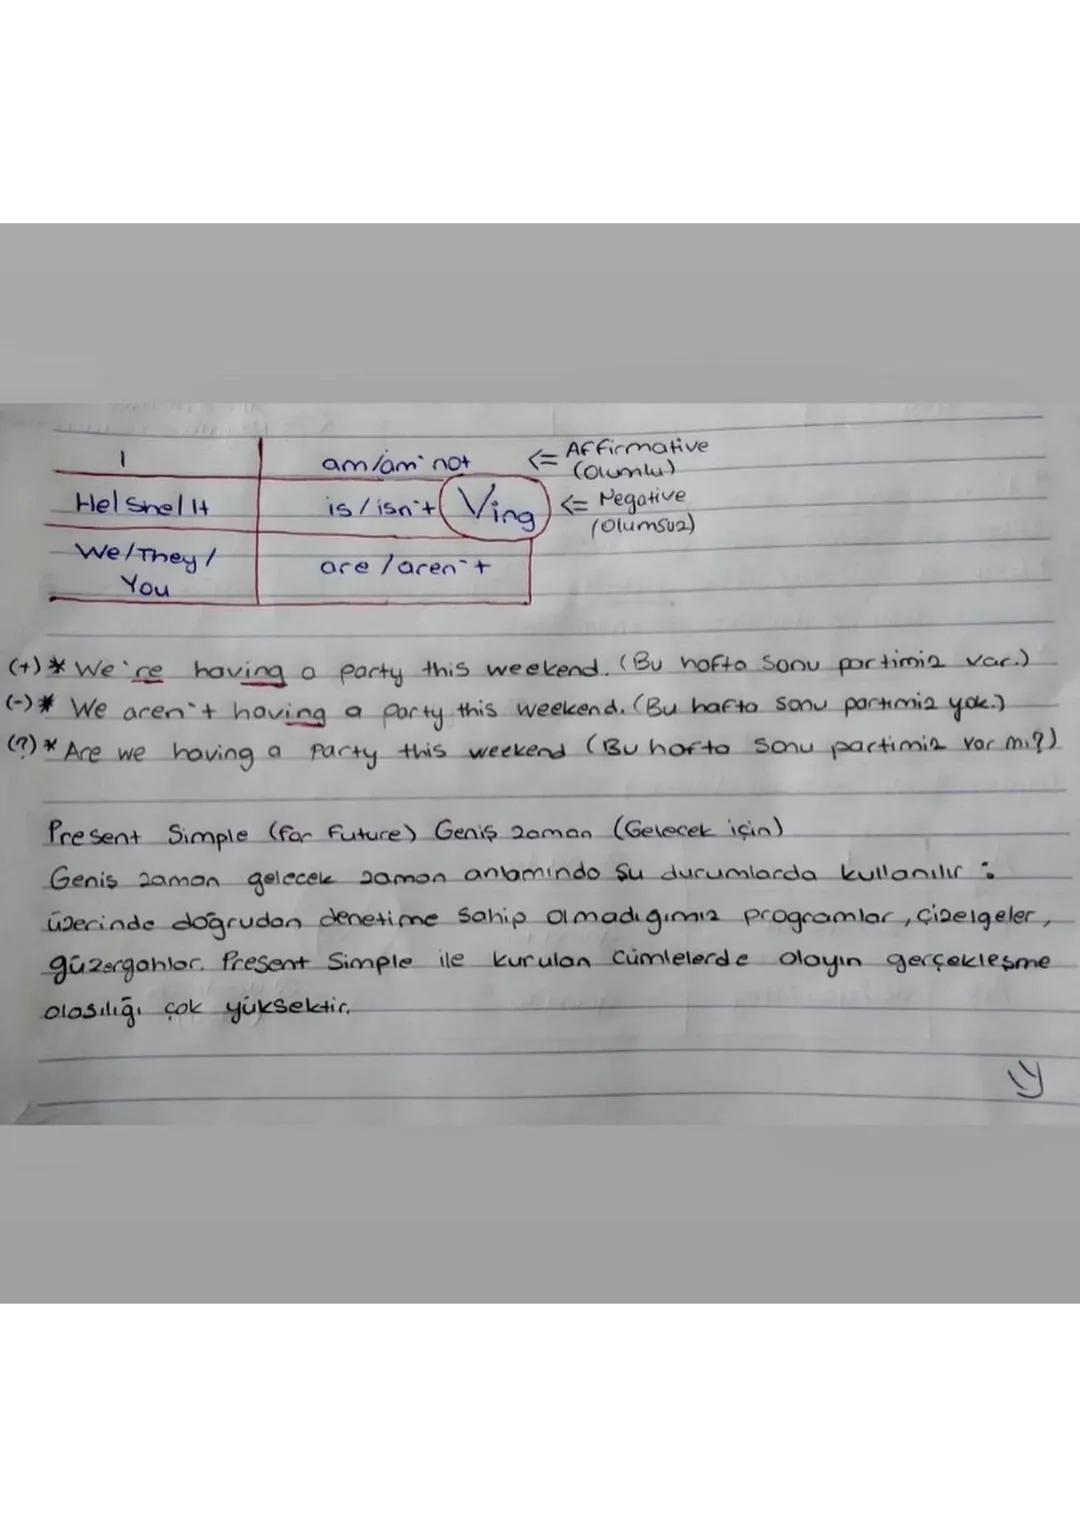 I am/am' not <= Affirmative
(Olumlu)
He/She/It is/isn't Ving <= Negative
(Olumsuz)
We/They/
You are/aren't
(+) * We're having a party this weekend. (Bu hafta sonu partimiz var.)
(-) * We aren't having a party this weekend. (Bu hafta sonu partimiz yok.)
(?) * Are we having a party this weekend (Bu hafta sonu partimiz var mı?)
Present Simple (for Future) Geniş zaman (Gelecek için)
Geniş zaman gelecek zaman anlamında şu durumlarda kullanılır :
üzerinde doğrudan denetime sahip olmadığımız programlar, çizelgeler,
güzergahlar. Present Simple ile kurulan cümlelerde olayın gerçekleşme
olasılığı çok yüksektir.